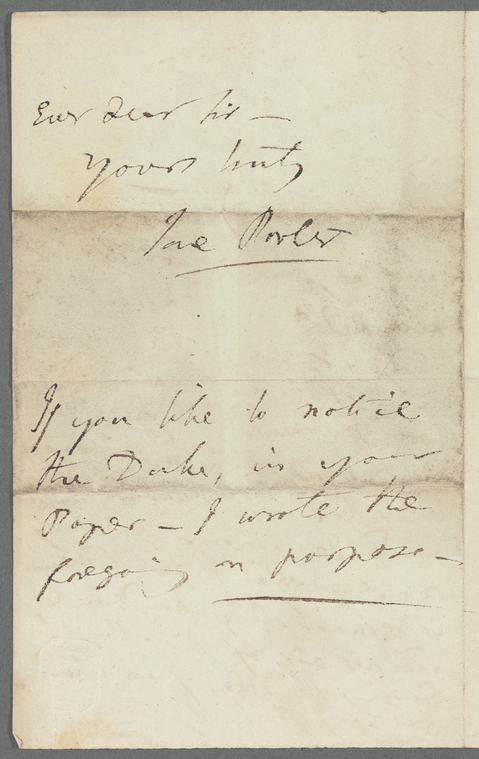 Ever dear Sir —
yours truly
Jane Porter
If you like to notice
the Duke, in your
Paper — I wrote the
foregoing on purpose —